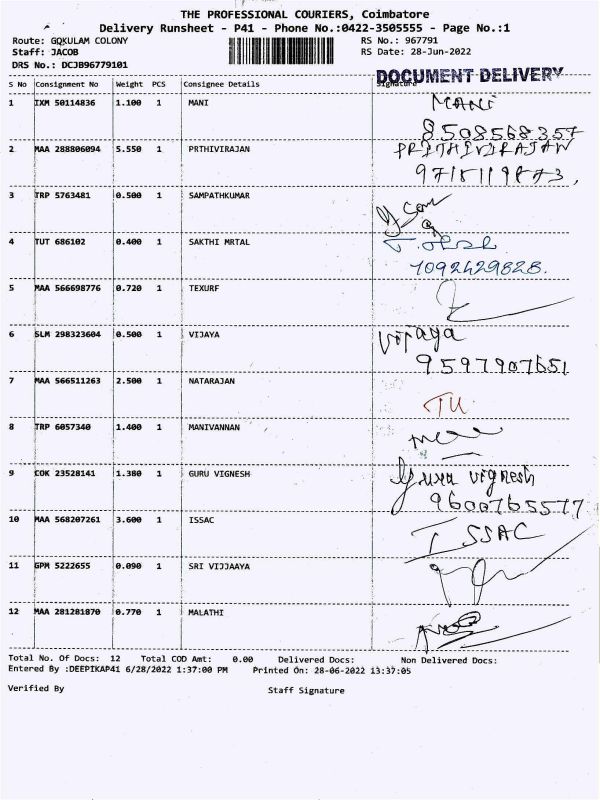 THE PROFESSIONAL COURIERS, Coimbatore
Delivery Runsheet - P41 - Phone No.:0422-3505555 - Page No.:1
Route: GOKULAM COLONY RS No.: 967791
Staff: JACOB RS Date: 28-Jun-2022
DRS No.: DCJB96779101
DOCUMENT DELIVERY
S No Consignment No Weight PCS Consignee Details Signature
1 IXM 50114836 1.100 1 MANI MANI
8508568357
2 MAA 288806094 5.550 1 PRTHIVIRAJAN PRITHIVIRAJAN
3 TRP 5763481 0.500 1 SAMPATHKUMAR
4 TUT 686102 0.400 1 SAKTHI MRTAL
7092429828.
5 MAA 566698776 0.720 1 TEXURF
6 SLM 298323604 0.500 1 VIJAYA Vijaya
9597907651
7 MAA 566511263 2.500 1 NATARAJAN
8 TRP 6057340 1.400 1 MANIVANNAN
9 COK 23528141 1.380 1 GURU VIGNESH Guru vignesh
9600765577
10 MAA 568207261 3.600 1 ISSAC ISSAC
11 GPM 5222655 0.090 1 SRI VIJJAAYA
12 MAA 281281870 0.770 1 MALATHI
Total No. Of Docs: 12 Total COD Amt: 0.00 Delivered Docs: Non Delivered Docs:
Entered By :DEEPIKAP41 6/28/2022 1:37:00 PM Printed On: 28-06-2022 13:37:05
Verified By Staff Signature